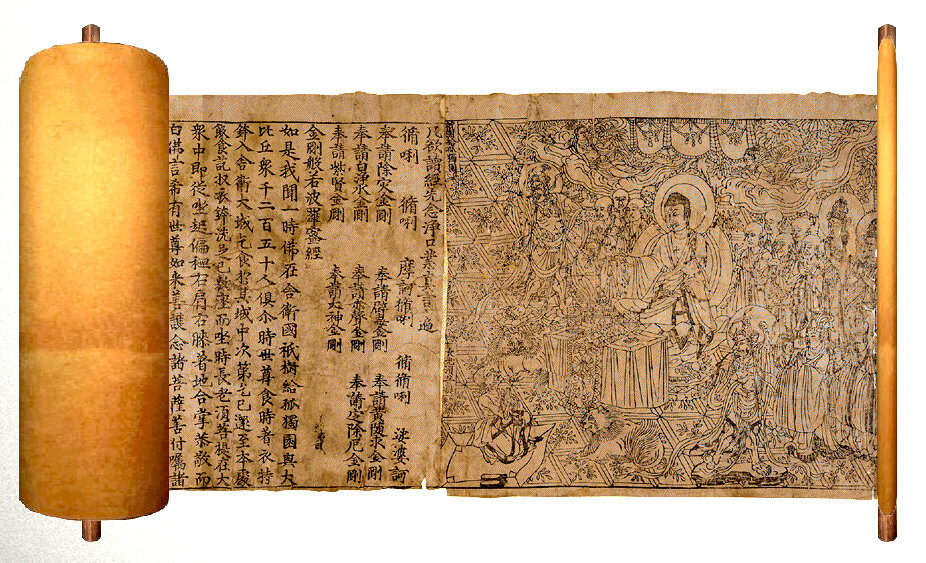 凡欲讀經先念淨口業真言一遍
脩唎 脩唎 摩訶脩唎 脩脩唎 娑婆訶
奉請除灾金剛 奉請辟毒金剛 奉請黃随求金剛
奉請白淨水金剛 奉請赤聲金剛 奉請定除厄金剛
奉請紫賢金剛 奉請大神金剛
金剛般若波羅蜜經
如是我聞一時佛在舍衛國祇樹給孤獨園與大
比丘衆千二百五十人俱尒時世尊食時著衣持
鉢入舍衛大城乞食於其城中次第乞已還至本處
飯食訖収衣鉢洗足已敷座而坐時長老須菩提在大
衆中即從坐起偏袒右肩右膝著地合掌恭敬而
白佛言希有世尊如来善護念諸菩薩善付囑諸